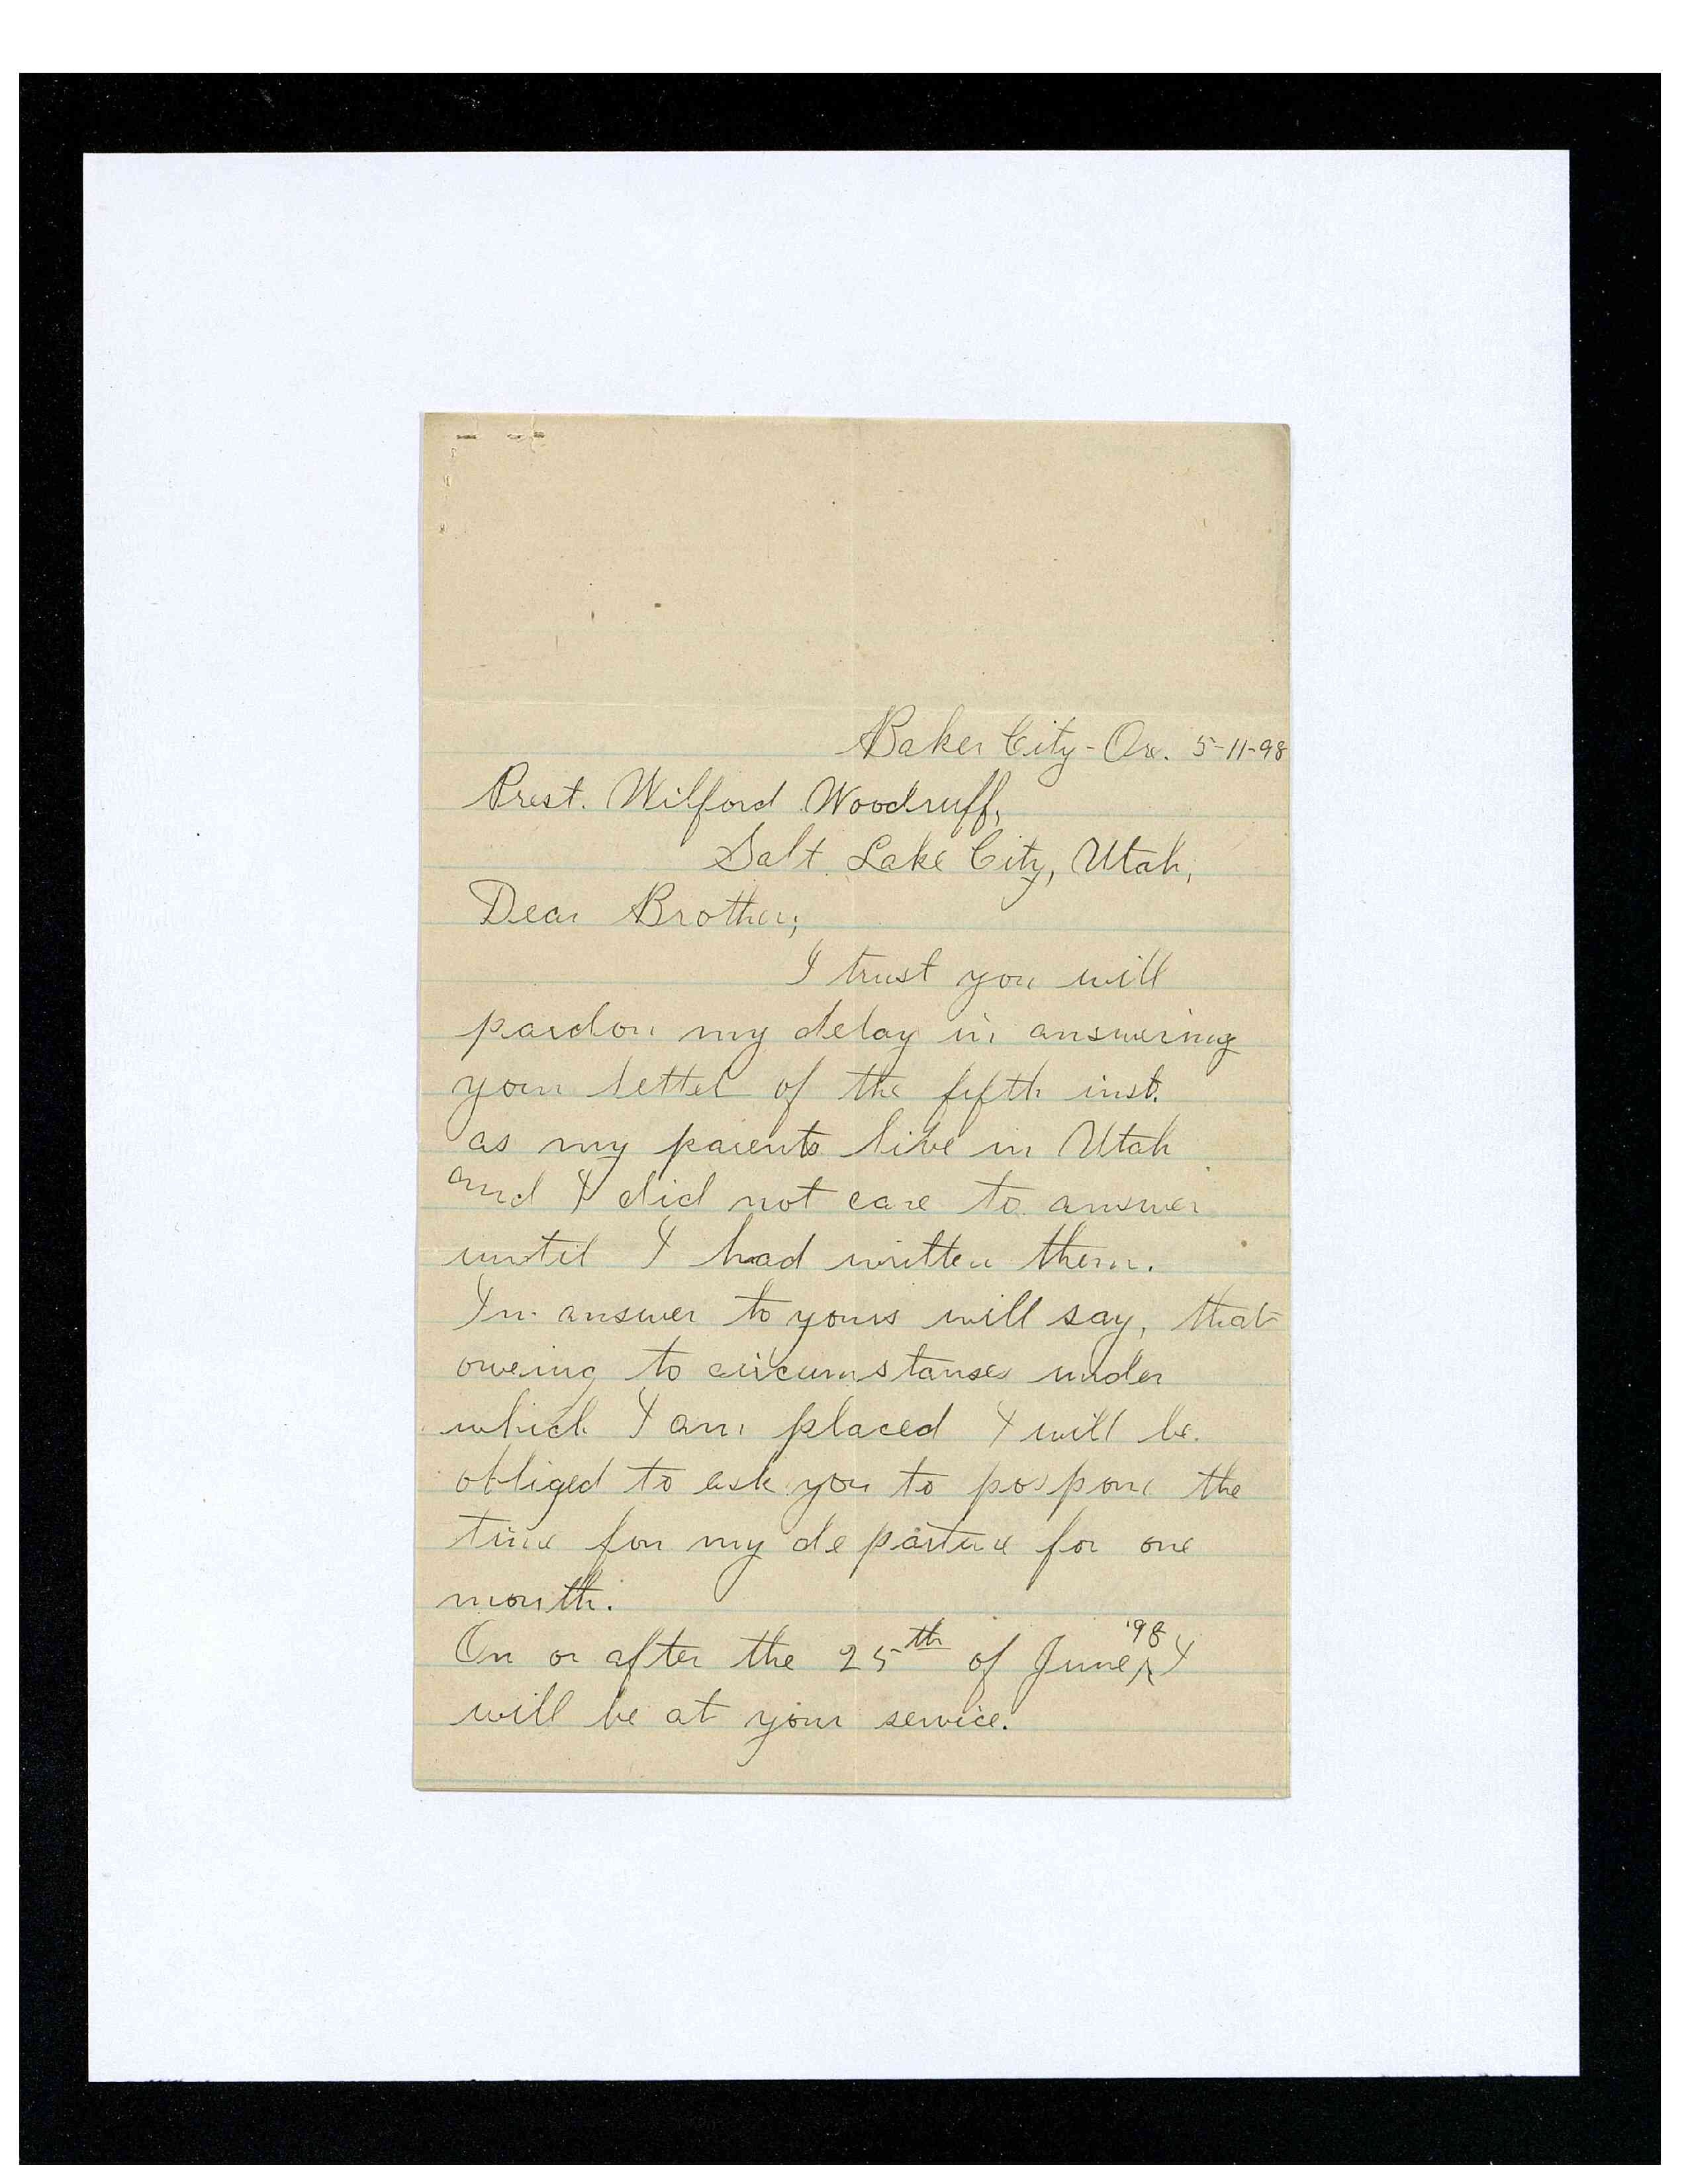 Baker City - Or. 5-11-98
Prest. Wilford Woodruff,
Salt Lake City, Utah,
Dear Brother;
I trust you will
pardon my delay in answering
your letter of the fifth inst.
as my parents live in Utah
and I did not care to answer
until I had written them.
In answer to yours will say, that
oweing to circumstanses under
which I am placed I will be
obliged to ask you to pospone the
time for my departure for one
month.
On or after the 25th of June, '98 I
will be at your service.